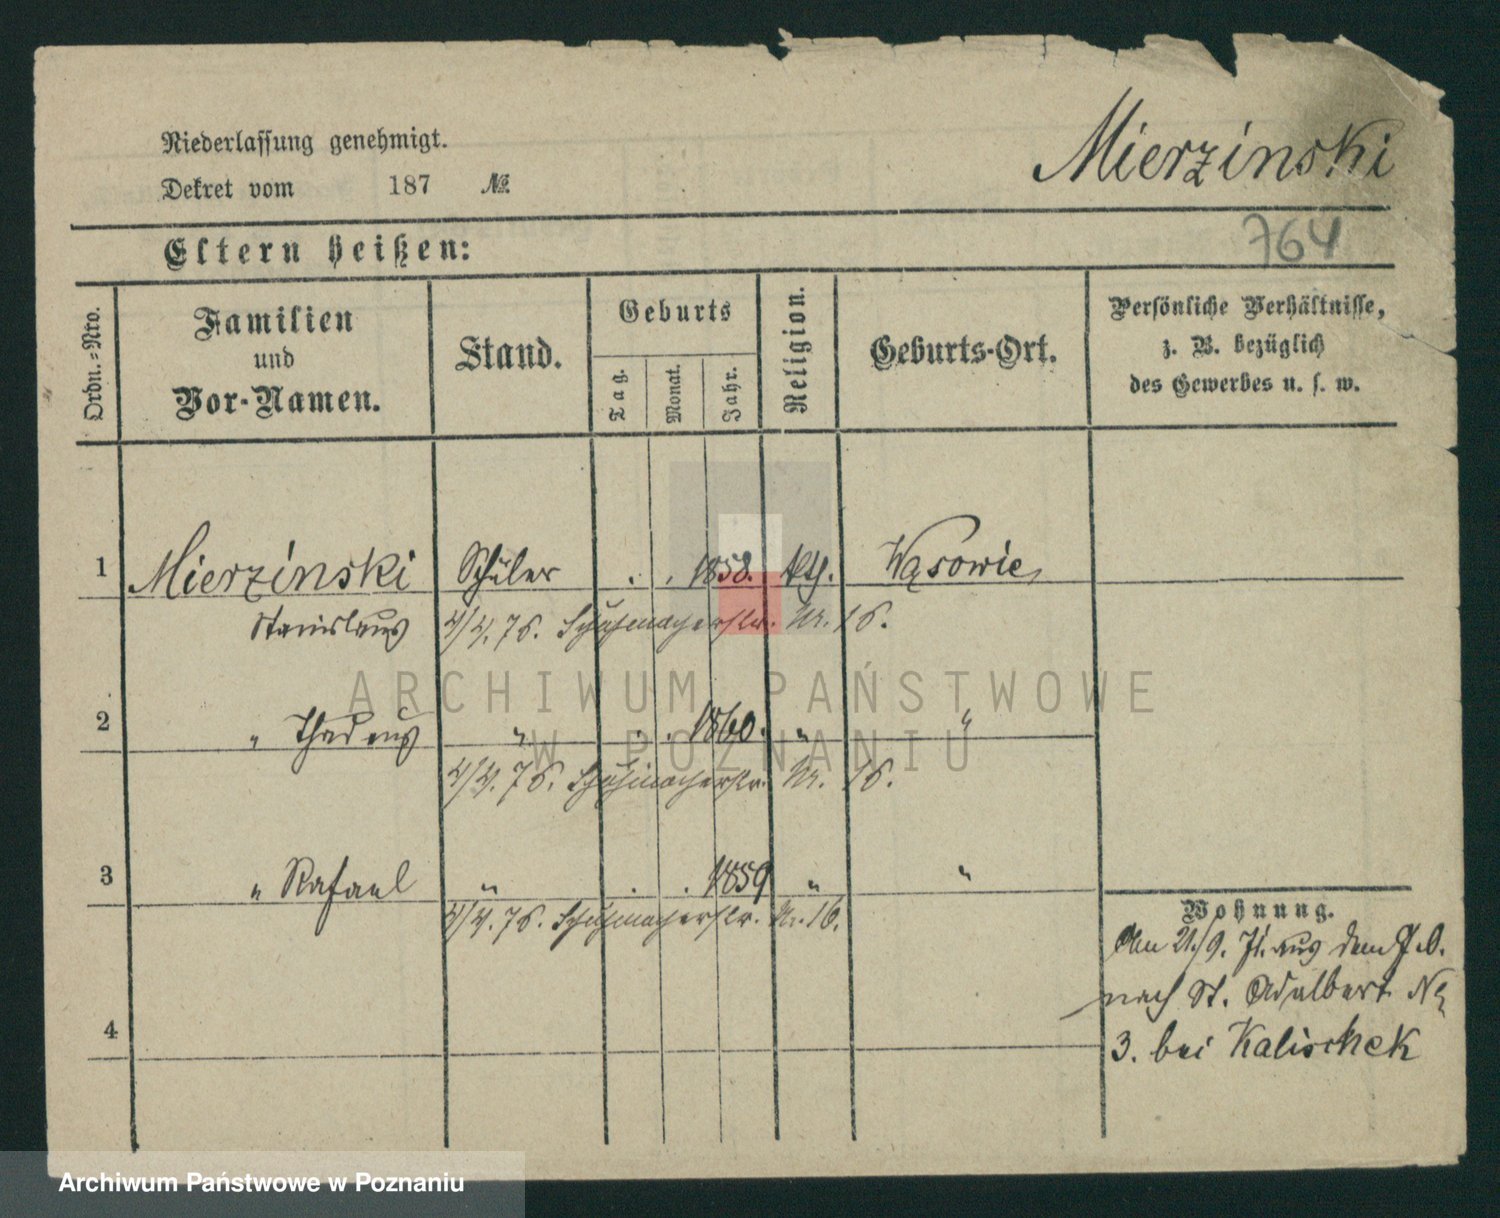 Niederlassung genehmigt.
Mierzinski
Dekret vom 187 №
764
Eltern heißen:
Ordn.-Nro.
Familien und Vor-Namen.
Stand.
Geburts
Tag.
Monat.
Jahr.
Religion.
Geburts-Ort.
Persönliche Verhältnisse,
z. B. bezüglich
des Gewerbes u. s. w.
1 Mierzinski Schüler . . 1858. kth. Wąsowie
Stanislaus 4/4. 76. Schuhmacherstr. Nr. 16.
2 " Thadeus " . . 1860. " "
4/4. 76. Schuhmacherstr. Nr. 16.
3 " Rafael " . . 1859 " "
4/4. 76. Schuhmacherstr. Nr. 16.
Wohnung.
Am 21/9. aus dem
nach St. Adalbert No
3. bei Kalischek
4
ARCHIWUM PAŃSTWOWE
W POZNANIU
Archiwum Państwowe w Poznaniu